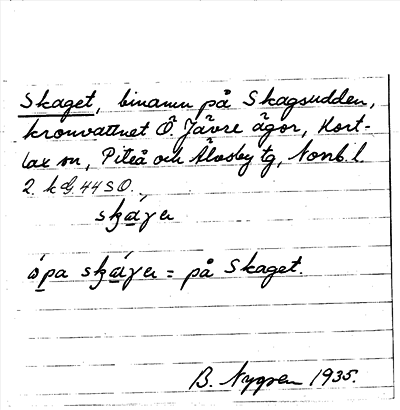 Skaget, binamn på Skagsudden,
kronvattnet Ö. Jävre ägor, Hort-
lax sn, Piteå och Älvsby tg, Norrb. l.
2. k G. 44 S O.
skaγer
på Skaget.
B. Nygren 1935.